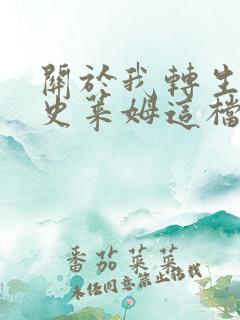 關於我轉生
史萊姆這檔
番茄菜菜
未任同意禁止搭載